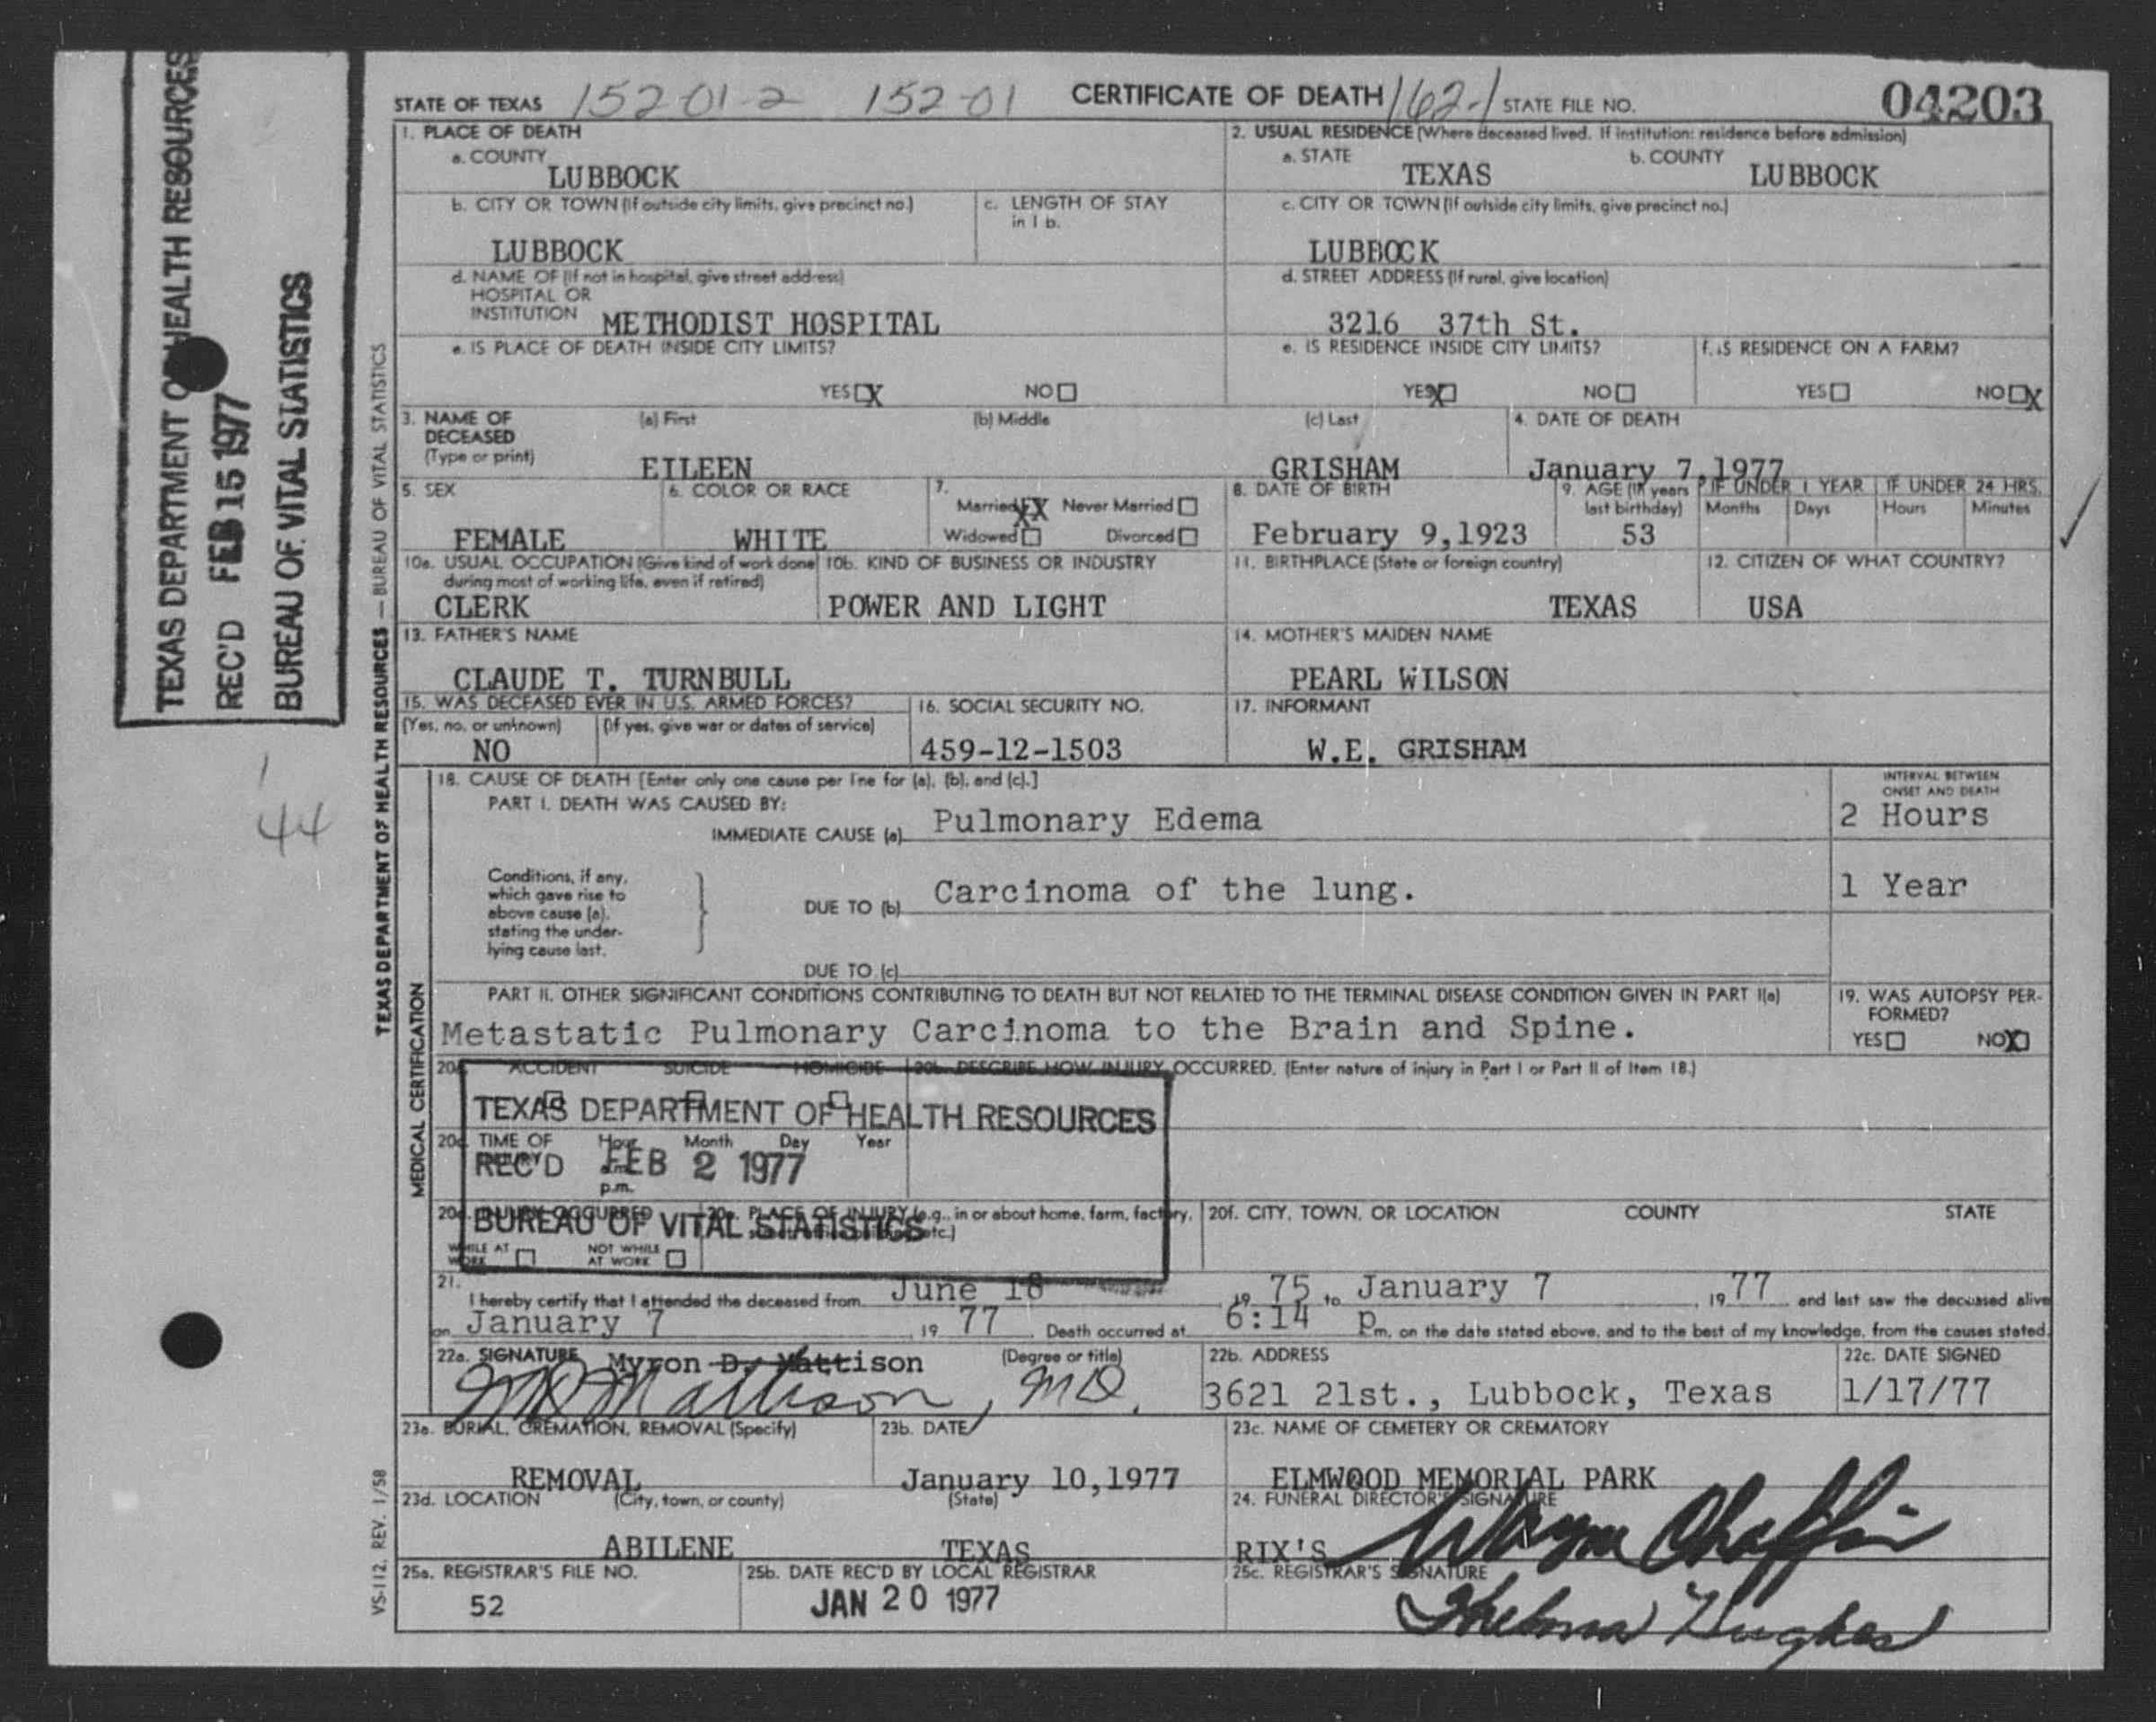 TEXAS DEPARTMENT OF HEALTH RESOURCES
REC'D FEB 15 1977
BUREAU OF VITAL STATISTICS
44
TEXAS DEPARTMENT OF HEALTH RESOURCES — BUREAU OF VITAL STATISTICS
VS-112, REV. 1/58
STATE OF TEXAS 152-01-2 152-01 CERTIFICATE OF DEATH 162-1 STATE FILE NO. 04203
1. PLACE OF DEATH
a. COUNTY
LUBBOCK
2. USUAL RESIDENCE (Where deceased lived. If institution: residence before admission)
a. STATE b. COUNTY
TEXAS LUBBOCK
b. CITY OR TOWN (If outside city limits, give precinct no.)
LUBBOCK
c. LENGTH OF STAY
in 1 b.
c. CITY OR TOWN (If outside city limits, give precinct no.)
LUBBOCK
d. NAME OF (If not in hospital, give street address)
HOSPITAL OR
INSTITUTION METHODIST HOSPITAL
d. STREET ADDRESS (If rural, give location)
3216 37th St.
e. IS PLACE OF DEATH INSIDE CITY LIMITS?
YES X NO
e. IS RESIDENCE INSIDE CITY LIMITS?
YES X NO
f. IS RESIDENCE ON A FARM?
YES NO X
3. NAME OF (a) First (b) Middle (c) Last
DECEASED
(Type or print)
EILEEN GRISHAM
4. DATE OF DEATH
January 7,1977
5. SEX
FEMALE
6. COLOR OR RACE
WHITE
7.
Married XX Never Married
Widowed Divorced
8. DATE OF BIRTH
February 9,1923
9. AGE (in years
last birthday)
53
IF UNDER 1 YEAR IF UNDER 24 HRS.
Months Days Hours Minutes
10a. USUAL OCCUPATION (Give kind of work done
during most of working life, even if retired)
CLERK
10b. KIND OF BUSINESS OR INDUSTRY
POWER AND LIGHT
11. BIRTHPLACE (State or foreign country)
TEXAS
12. CITIZEN OF WHAT COUNTRY?
USA
13. FATHER'S NAME
CLAUDE T. TURNBULL
14. MOTHER'S MAIDEN NAME
PEARL WILSON
15. WAS DECEASED EVER IN U.S. ARMED FORCES?
(Yes, no, or unknown) (If yes, give war or dates of service)
NO
16. SOCIAL SECURITY NO.
459-12-1503
17. INFORMANT
W.E. GRISHAM
MEDICAL CERTIFICATION
18. CAUSE OF DEATH [Enter only one cause per line for (a), (b), and (c).]
PART I. DEATH WAS CAUSED BY:
IMMEDIATE CAUSE (a) Pulmonary Edema
INTERVAL BETWEEN
ONSET AND DEATH
2 Hours
Conditions, if any,
which gave rise to
above cause (a),
stating the under-
lying cause last.
DUE TO (b) Carcinoma of the lung.
1 Year
DUE TO (c)
PART II. OTHER SIGNIFICANT CONDITIONS CONTRIBUTING TO DEATH BUT NOT RELATED TO THE TERMINAL DISEASE CONDITION GIVEN IN PART I(a)
Metastatic Pulmonary Carcinoma to the Brain and Spine.
19. WAS AUTOPSY PER-
FORMED?
YES NO X
20a. ACCIDENT SUICIDE HOMICIDE
20b. DESCRIBE HOW INJURY OCCURRED. (Enter nature of injury in Part I or Part II of Item 18.)
TEXAS DEPARTMENT OF HEALTH RESOURCES
20c. TIME OF Hour Month Day Year
p.m.
REC'D FEB 2 1977
BUREAU OF VITAL STATISTICS
20d. INJURY OCCURRED
WHILE AT
WORK
NOT WHILE
AT WORK
20e. PLACE OF INJURY (e.g., in or about home, farm, factory,
etc.)
20f. CITY, TOWN, OR LOCATION COUNTY STATE
21.
I hereby certify that I attended the deceased from June 18 19 75 to January 7 1977 and last saw the deceased alive
on January 7 19 77 Death occurred at 6:14 P m, on the date stated above, and to the best of my knowledge, from the causes stated.
22a. SIGNATURE Myron D. Mattison (Degree or title)
MD Mattison, MD.
22b. ADDRESS
3621 21st., Lubbock, Texas
22c. DATE SIGNED
1/17/77
23a. BURIAL, CREMATION, REMOVAL (Specify)
REMOVAL
23b. DATE
January 10,1977
23c. NAME OF CEMETERY OR CREMATORY
ELMWOOD MEMORIAL PARK
23d. LOCATION (City, town, or county) (State)
ABILENE TEXAS
24. FUNERAL DIRECTOR'S SIGNATURE
RIX'S Wayne Chaffin
25a. REGISTRAR'S FILE NO.
52
25b. DATE REC'D BY LOCAL REGISTRAR
JAN 20 1977
25c. REGISTRAR'S SIGNATURE
Thelma Hughes